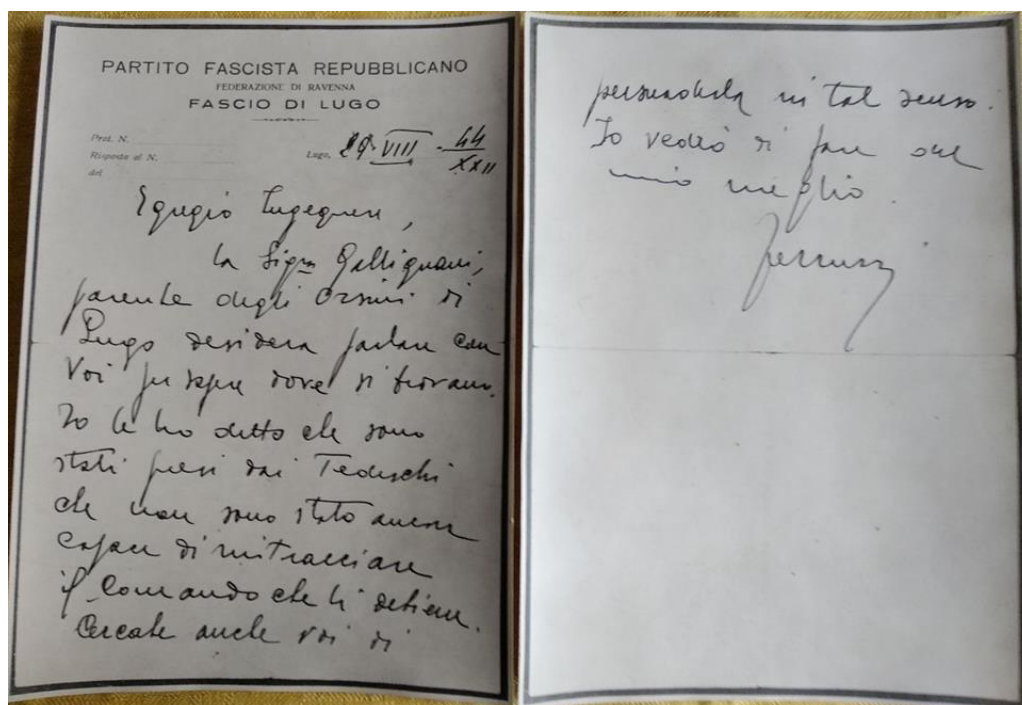 PARTITO FASCISTA REPUBBLICANO
FEDERAZIONE DI RAVENNA
FASCIO DI LUGO
Prot. N.
Risposta al N.
del
Lugo, 29 VIII - 44
XXII
Egregio Ingegnere,
la Sigra Gallignani,
parente degli Orsini di
Lugo desidera parlare con
Voi per sapere dove si trovano.
Io le ho detto che sono
stati presi dai Tedeschi
che non sono stato ancora
capace di rintracciare
il Comando che li detiene.
Cercate anche voi di
persuaderla in tal senso.
Io vedrò di fare del
mio meglio.